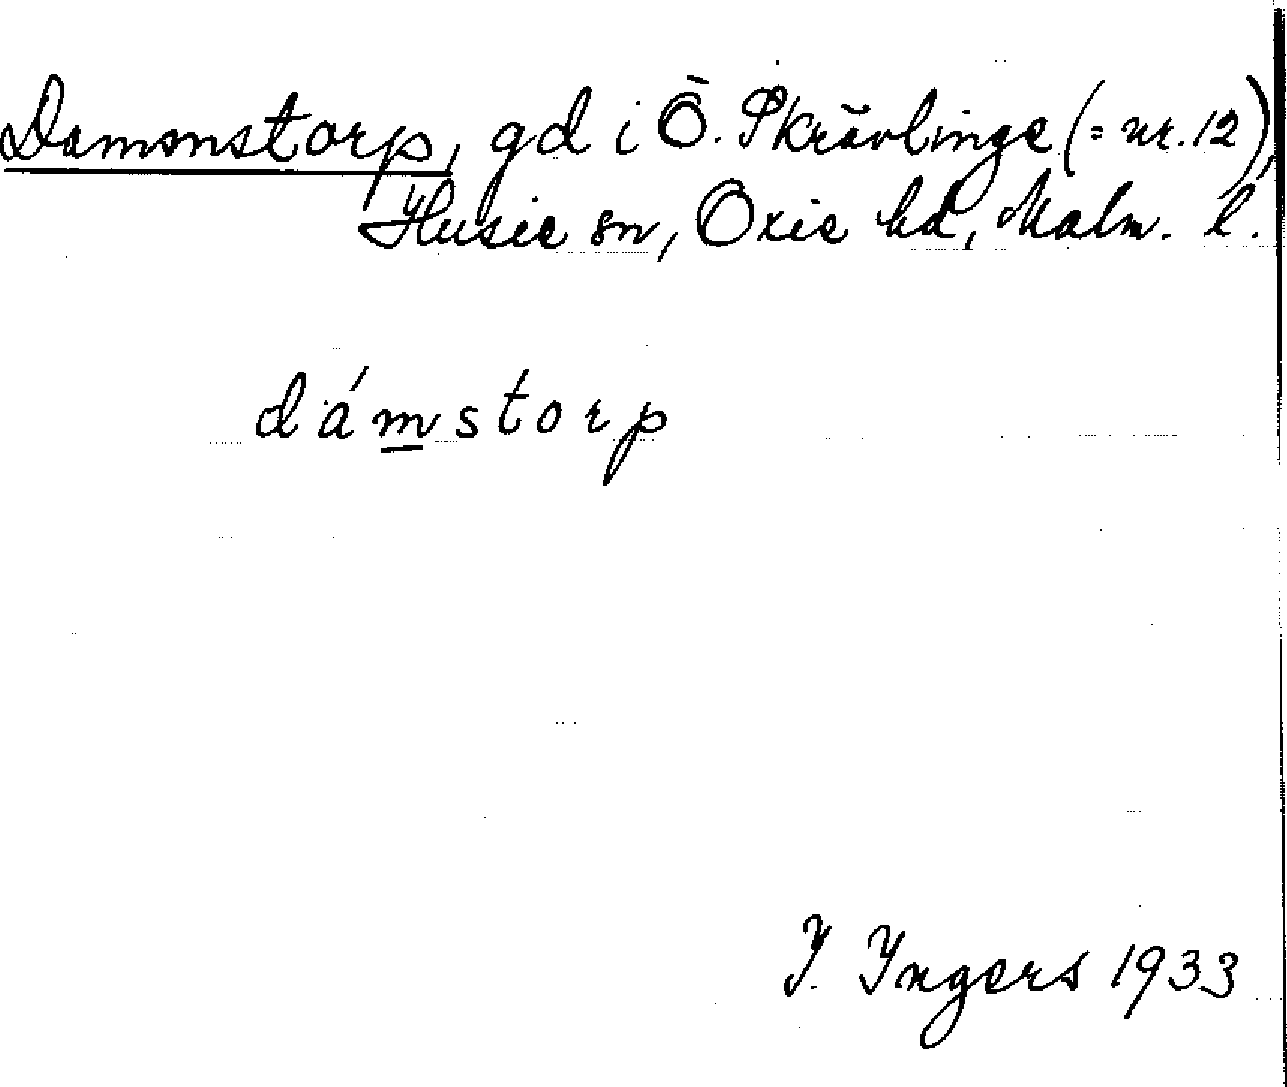 Dammstorp, gd i Ö. Skrävlinge (= nr. 12),
Husie sn, Oxie hd, Malm. l.
dámstorp
I. Ingers 1933